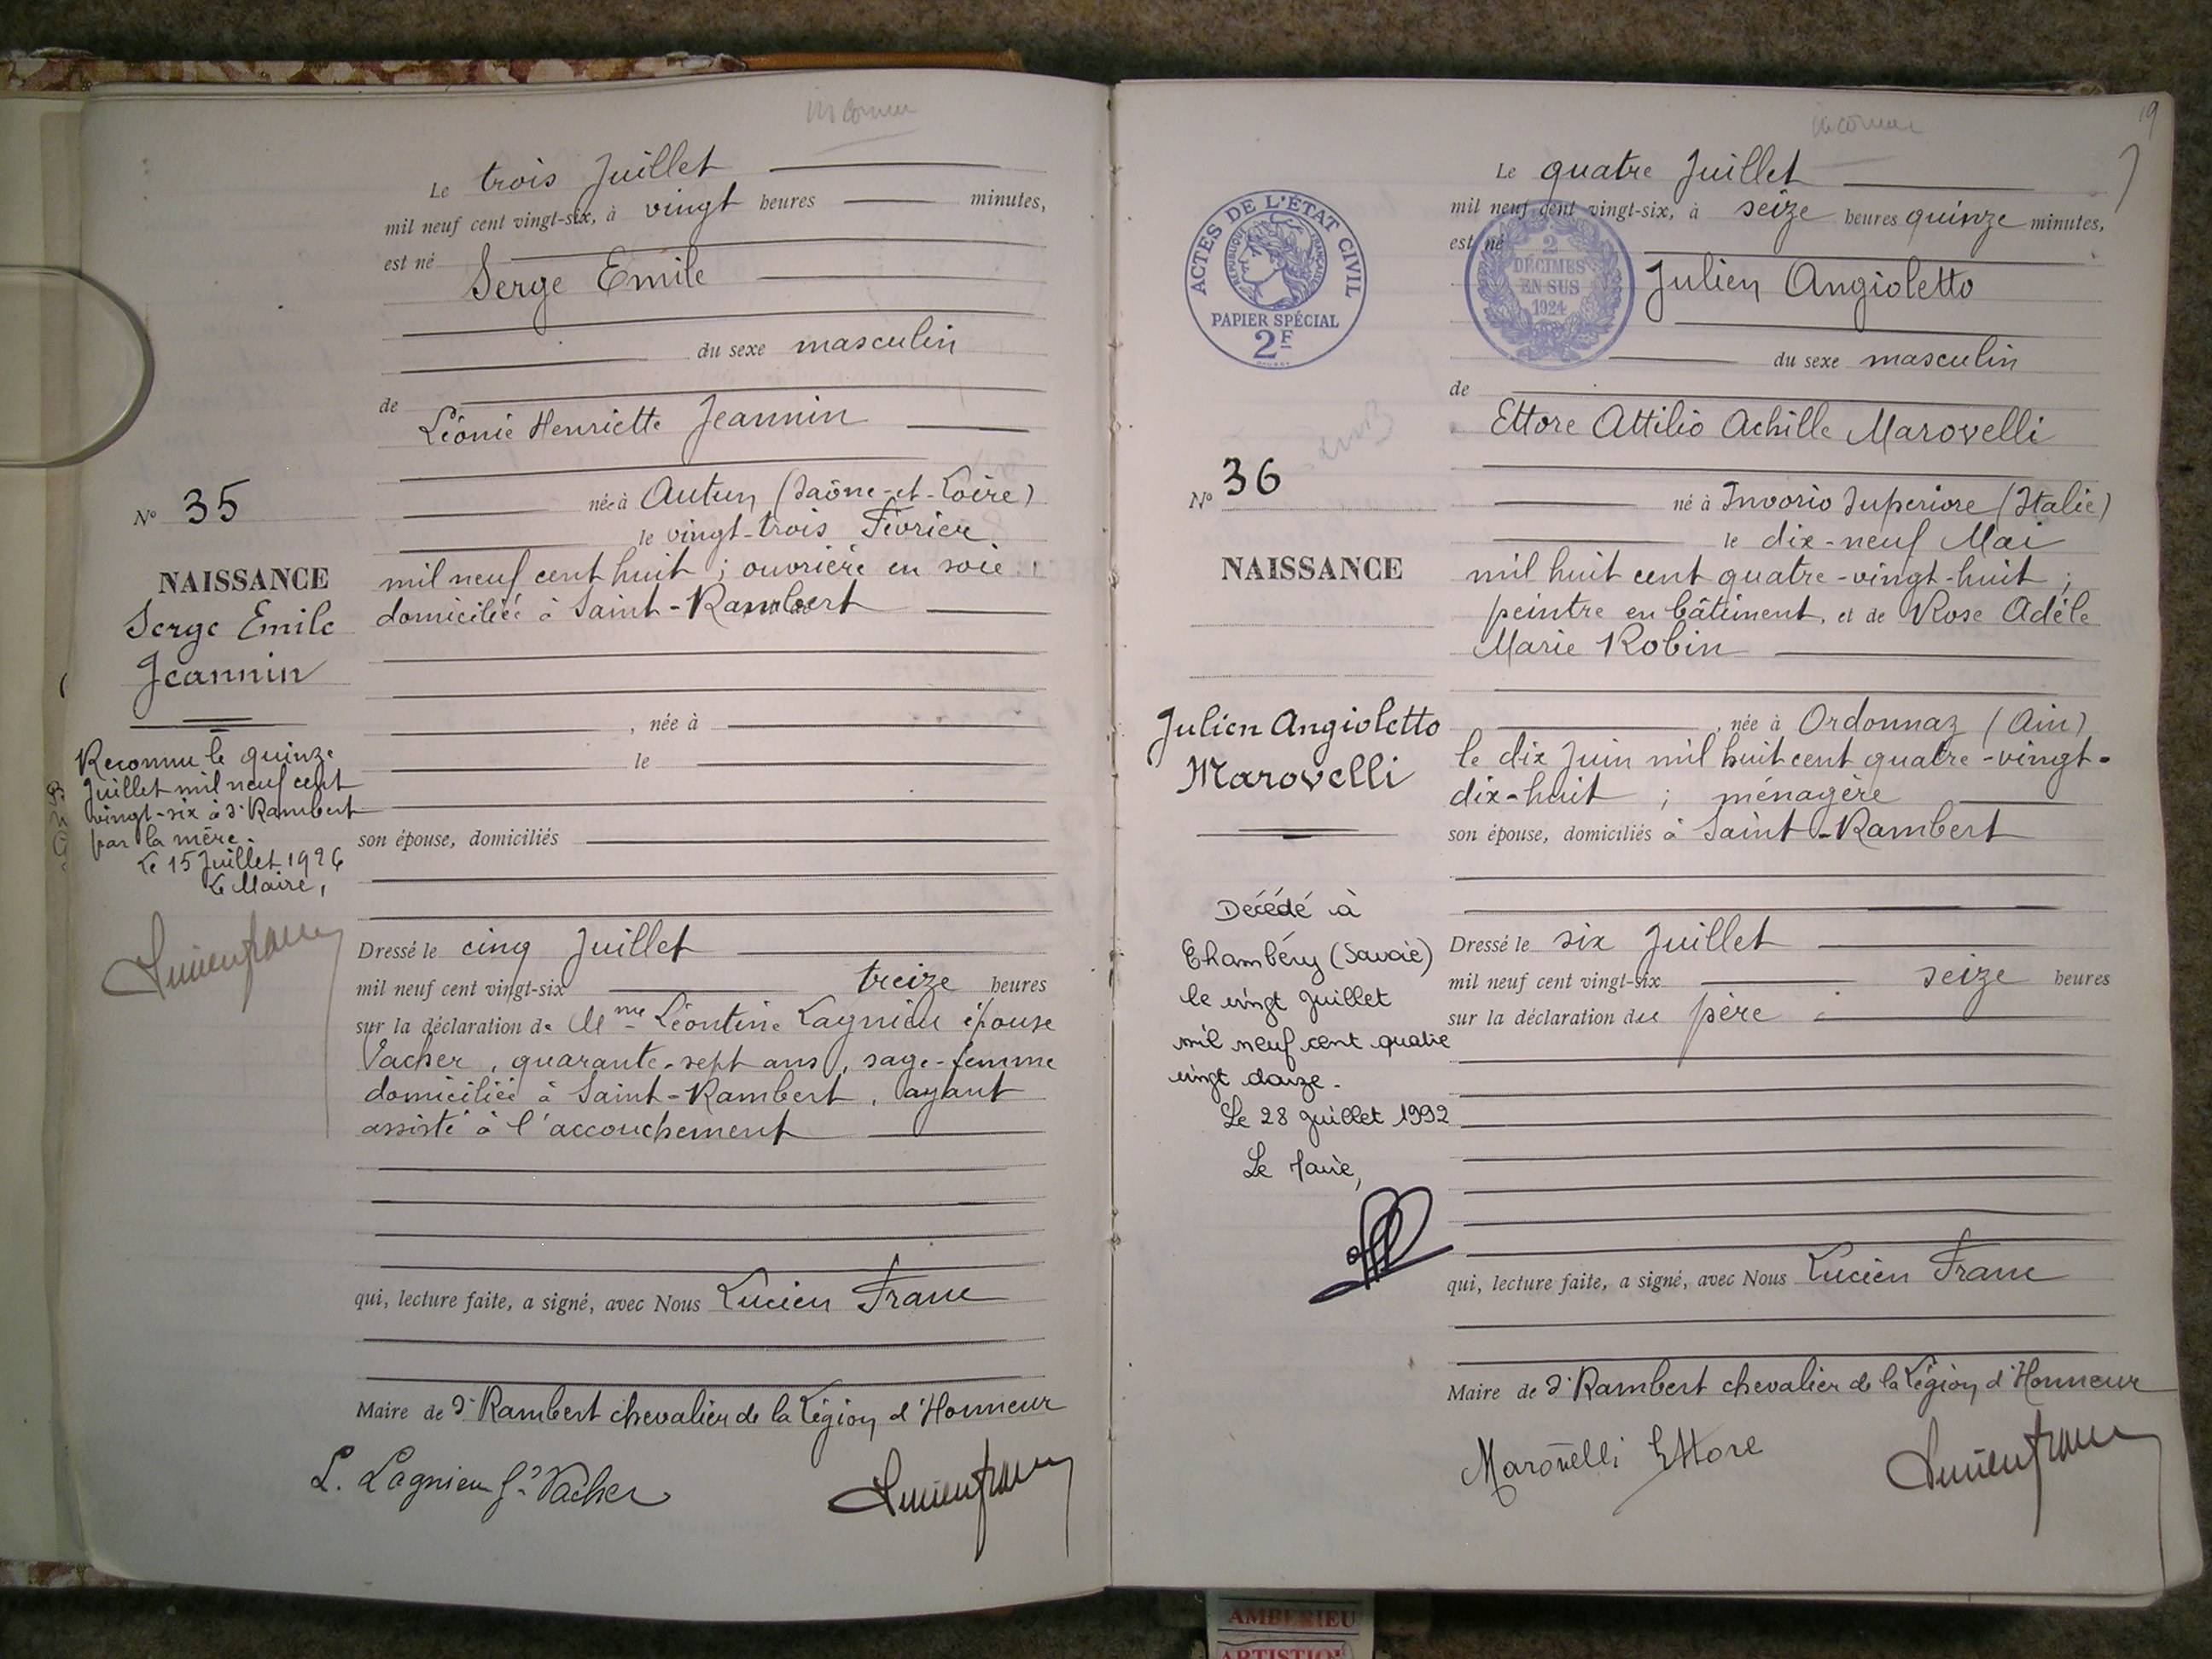 inconnu
Le trois Juillet
mil neuf cent vingt-six, à vingt heures minutes,
est né
Serge Emile
du sexe masculin
de
Léonie Henriette Jeannin
née à Autun (Saône-et-Loire)
le vingt-trois Février
mil neuf cent huit ; ouvrière en soie
domiciliée à Saint-Rambert
, née à
le
son épouse, domiciliés
Dressé le cinq Juillet
mil neuf cent vingt-six treize heures
sur la déclaration de Mme Léontine Lagnieu épouse
Vacher, quarante-sept ans, sage-femme
domiciliée à Saint-Rambert, ayant
assisté à l'accouchement
qui, lecture faite, a signé, avec Nous Lucien Franc
Maire de St Rambert chevalier de la Légion d'Honneur
L. Lagnieu f. Vacher
Lucien Franc
No 35
NAISSANCE
Serge Emile
Jeannin
Reconnu le quinze
Juillet mil neuf cent
vingt-six à St Rambert
par la mère.
Le 15 Juillet 1926
Le Maire,
Lucien Franc
inconnu
19
Le quatre Juillet
mil neuf cent vingt-six, à seize heures quinze minutes,
est né
Julien Angioletto
du sexe masculin
de
Ettore Attilio Achille Marovelli
né à Invorio Superiore (Italie)
le dix-neuf Mai
mil huit cent quatre-vingt-huit ;
peintre en bâtiment, et de Rose Adèle
Marie Robin
, née à Ordonnaz (Ain)
le dix Juin mil huit cent quatre-vingt-
dix-huit ; ménagère
son épouse, domiciliés à Saint-Rambert
Dressé le six Juillet
mil neuf cent vingt-six seize heures
sur la déclaration du père
qui, lecture faite, a signé, avec Nous Lucien Franc
Maire de St Rambert chevalier de la Légion d'Honneur
Marovelli Ettore
Lucien Franc
ACTES DE L'ÉTAT CIVIL
RÉPUBLIQUE FRANÇAISE
PAPIER SPÉCIAL
2F
2
DÉCIMES
EN SUS
1924
No 36
NAISSANCE
Julien Angioletto
Marovelli
Décédé à
Chambéry (Savoie)
le vingt juillet
mil neuf cent quatre
vingt douze.
Le 28 juillet 1992
Le Maire,
AMBERIEU